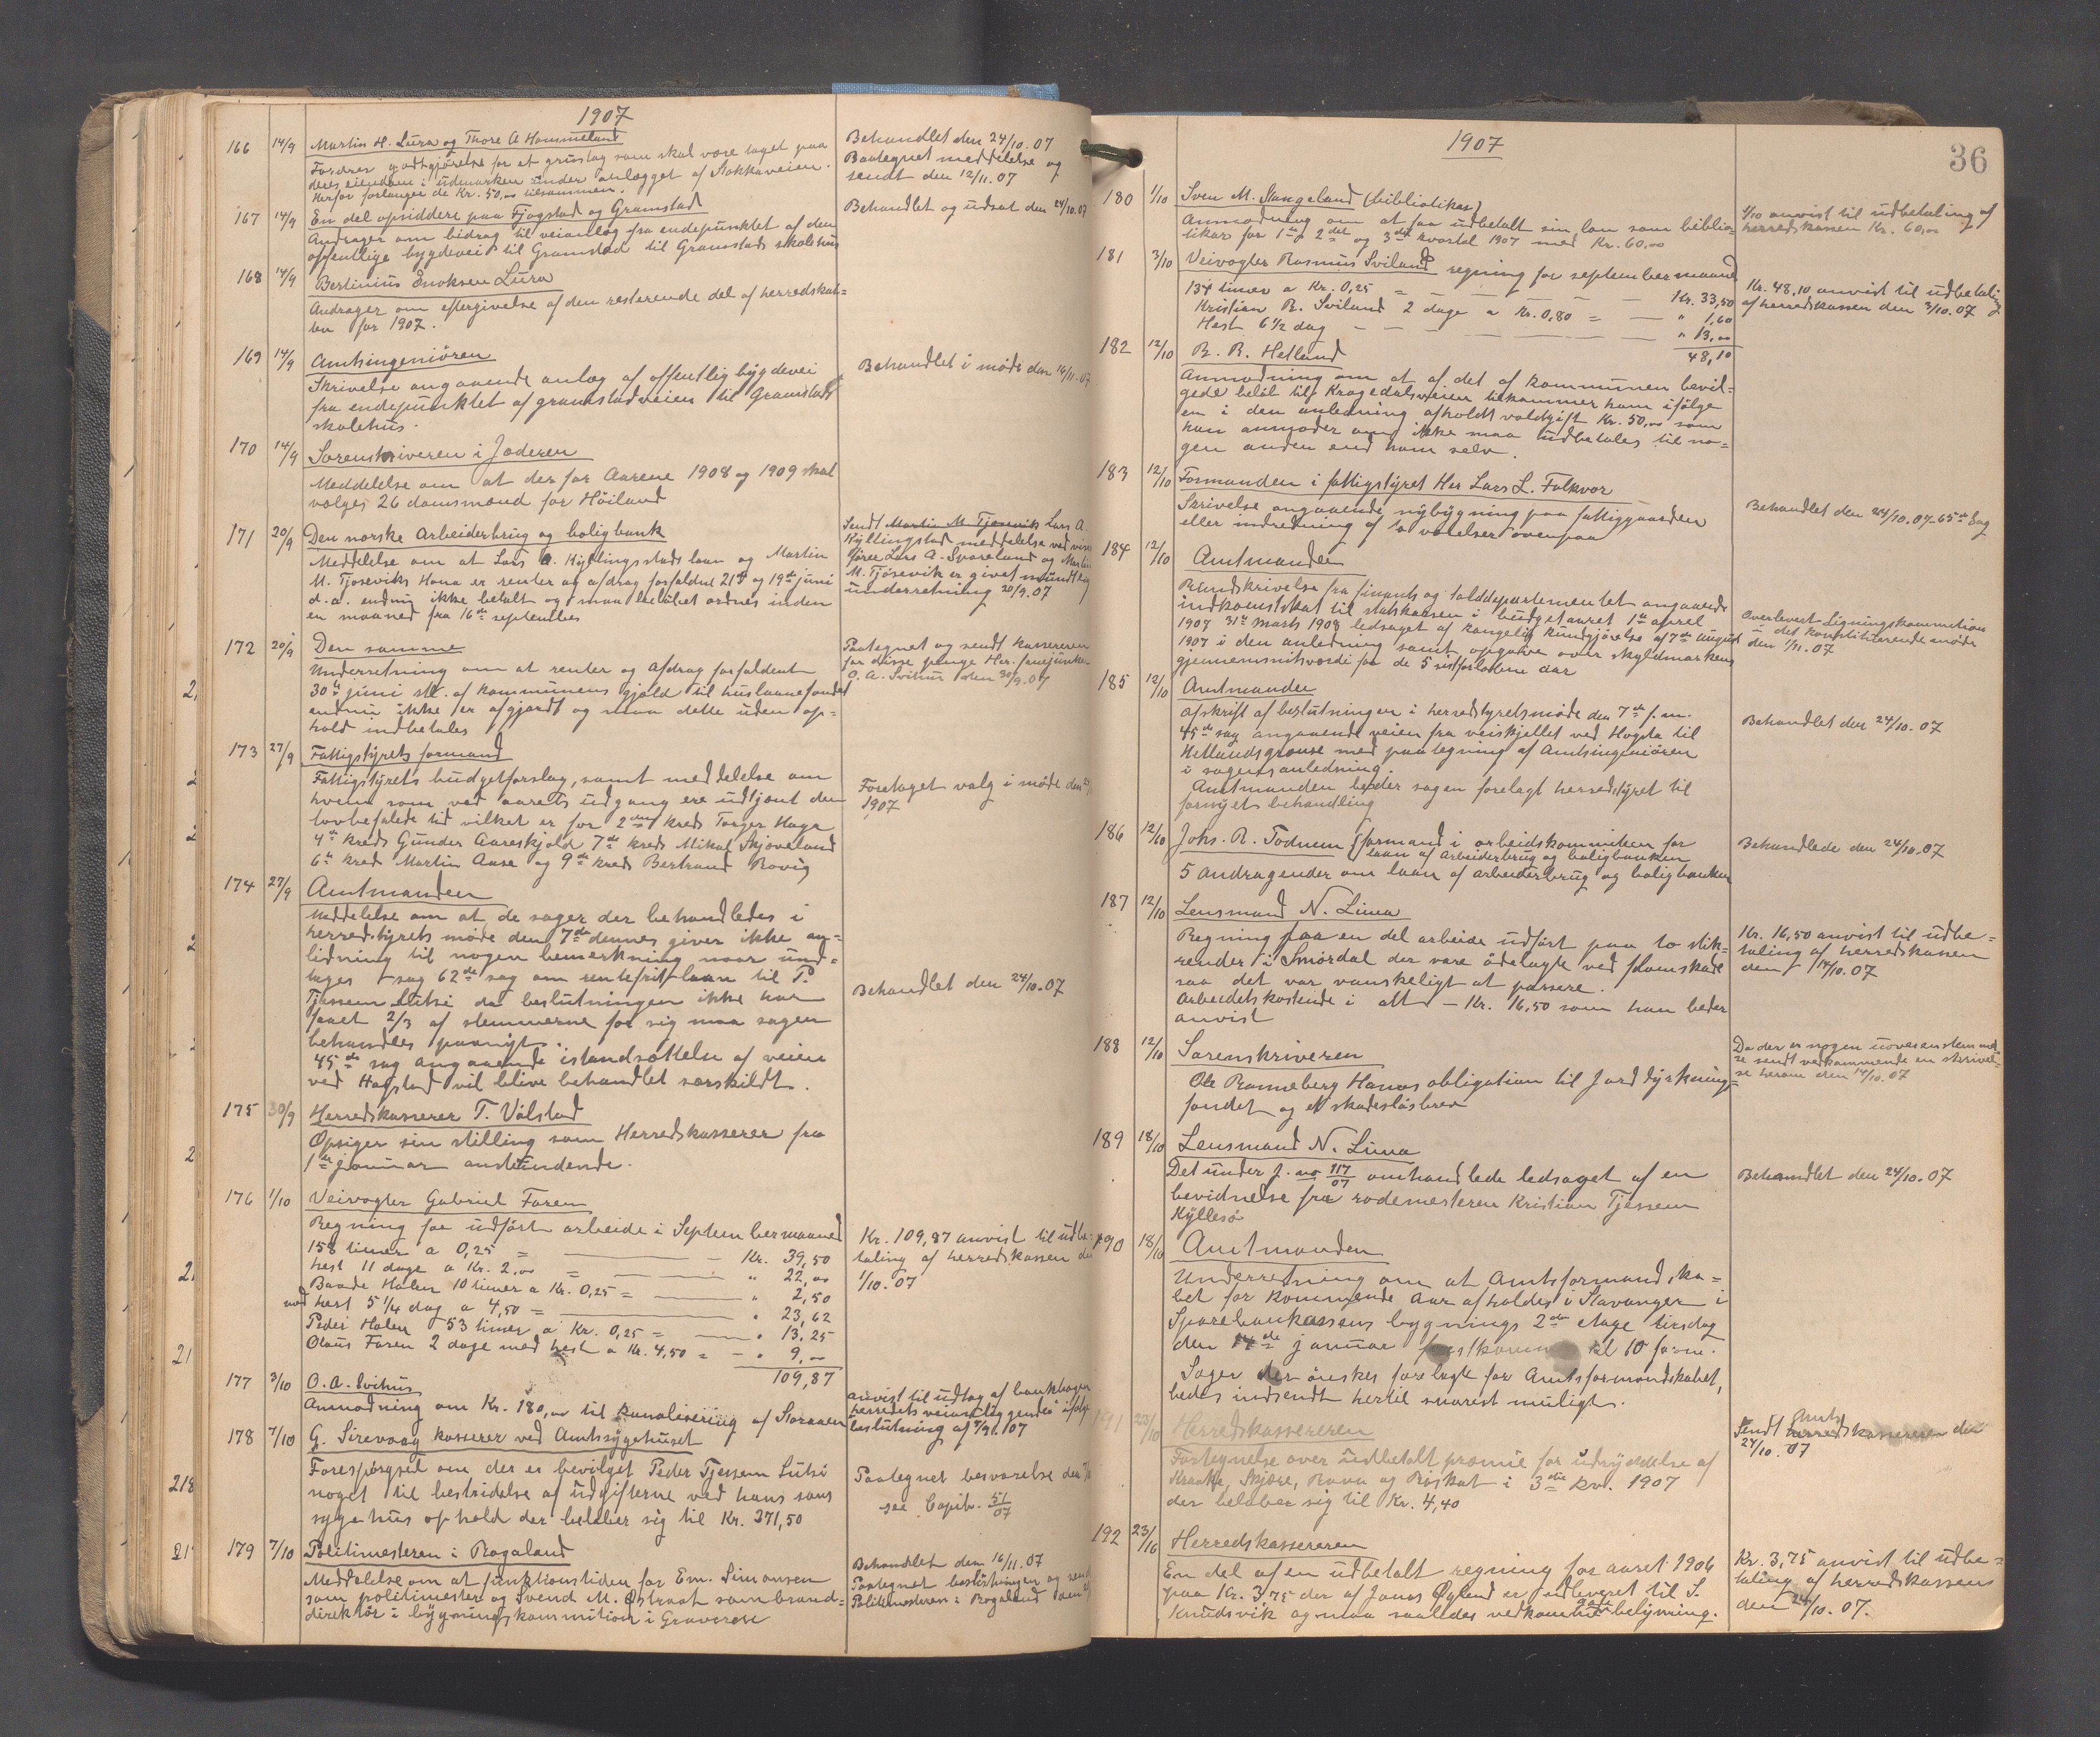 1907
166 14/9 Martin H. Lura og Thore A Hammeland
Fordrer godtgjørelse for et grustag som skal være taget paa
deres eiendom i udmarken under anlægget af Stokkaveien.
Herfor forlanger de Kr. 50,00 tilsammen.
Behandlet den 24/10.07
Paategnet meddelelse og
sendt den 12/11.07
167 14/9 En del opsiddere paa Fjogstad og Gramstad
Andrager om bidrag til veianlæg fra endepunktet af den
offentlige bygdevei til Gramstad til Gramstads skolehus
Behandlet og udsat den 24/10.07
168 14/9 Bertinius Enoksen Lura
Andrager om eftergivelse af den resterende del af herredskat=
ten for 1907.
169 14/9 Amtsingeniören
Skrivelse angaaende anlæg af offentlig bygdevei
fra endepunktet af gramstadveien til Gramstads
skolehus.
Behandlet i møde den 16/11.07
170 14/9 Sorenskriveren i Jæderen
Meddelelse om at der for Aarene 1908 og 1909 skal
vælges 26 domsmænd for Höiland
171 20/9 Den norske Arbeiderbrug og boligbank
Meddelelse om at Lars A. Kyllingstads laan og Martin
M. Tjoseviks Hana er renter og afdrag forfaldne 21de og 19de juni
d.a. endnu ikke betalt og maa beløbet ordnes inden
en maaned fra 16de september
Sendt Martin M Tjosevik Lars A.
Kyllingstad meddelelse ved
Lars A. Svareland og
M. Tjösevik er givet mündtlig
ünderretning 20/9.07
172 20/9 Den samme
Underretning om at renter og afdrag forfaldent
30te juni af kommunens gjæld til huslaanefondet
endnu ikke er afgjordt og maa dette uden op=
hold indbetales
Paategnet og sendt kassereren
for disse penge Hr.
O. A. Svihus den 30/9.07
173 27/9 Fattigstyrets formand
Fattigstyrets budgetforslag, samt meddelelse om
hvem som ved aarets udgang ere udtjent den
lovbefalede tid vilket er for 2den kreds Torger Haga
4de kreds Gunder Aareskjold 7de kreds Mikal Skjæveland
6te kred Martin Aase og 9de kreds Bertrand Rovig
Foretaget valg i møde den
1907
174 27/9 Amtmanden
Meddelelse om at de sager der behandledes i
herredstyrets møde den 7de dennes giver ikke an=
ledning til nogen bemerkning naar und=
tages sag 62de sag om rentefrit laan til P.
Tjessem Lutsi da beslutningen ikke har
faaet 2/3 af stemmerne for sig maa sagen
behandles paanyt.
45de sag angaaende istandsættelse af veien
ved Hogstad vil blive behandlet særskildt.
Behandlet den 24/10.07
175 30/9 Herredskasserer T. Vølstad
Opsiger sin stilling som Herredskasserer fra
1ste januar anstundende.
176 1/10 Veivogter Gabriel Faren
Regning for udført arbeide i Septembermaaned
158 timer a 0,25 = Kr. 39,50
hest 11 dage a Kr. 2,00 = " 22,00
Baade Halen 10 timer a Kr. 0,25 = " 2,50
med hest 5 1/4 dag a 4,50 = " 23,62
Peder Halen 53 timer a Kr. 0,25 = " 13,25
Olaus Faren 2 dage med hest a Kr. 4,50 = " 9,00
109,87
Kr. 109,87 anvist til udbe=
taling af herredskassen den
1/10.07
177 3/10 O. A. Svihus
Anmodning om Kr. 180,00 til kanalisering af Storaaen
anvist til udtag af bankbogen
herredets veianlæggende ifølge
beslutning af 7/9.07
178 7/10 G. Sirevaag kasserer ved Amtssygehuset
Forespørgsel om der er bevilget Peder Tjessem Lutsi
noget til bestridelse af udgifterne ved hans søns
sygehus ophold der beløber sig til Kr. 371,50
Paategnet besvarelse den
see Copib. 51/07
179 7/10 Politimesteren i Rogaland
Meddelelse om at funktionstiden for Em. Simonsen
som politimester og Svend M. Østraat som brand=
direktør i bygningskommition i Graveren
Behandlet den 16/11.07
Paategnet beslutningen og sendt
Politimesteren i Rogaland den
1907
36
180 1/10 Sven M. Stangeland (bibliotikar)
Anmodning om at faa udbetalt sin løn som biblio=
tikar for 1ste 2det og 3die kvartal 1907 med Kr. 60,00
1/10 anvist til udbetaling af
herredskassen Kr. 60,00
181 3/10 Veivogter Rasmus Sviland regning for september maaned
134 timer a Kr. 0,25 = Kr. 33,50
Kristian R. Sviland 2 dage a Kr. 0,80 = " 1,60
Hest 6 1/2 dag " 13,00
48,10
Kr. 48,10 anvist til udbetaling
af herredskassen den 3/10.07
182 12/10 B. R. Hetland
Anmodning om at af det af kommunen bevil=
gede beløb til Kragedalsveien tilkommer ham ifølge
en i den anledning afholdt voldgift Kr. 50,00 som
han anmoder om ikke maa udbetales til no=
gen anden end ham selv.
183 12/10 Formanden i fattigstyret Hr Lars L. Folkvor
Skrivelse angaaende nybygning paa fattiggaarden
eller indredning af to værelser ovenpaa
Behandlet den 24/10.07-65de Sag
184 12/10 Amtmanden
Rundskrivelse fra finants og tolddepartementet angaaende
indkomstskat til statskassen i budgetaaret 1ste april
1907 31te marts 1908 ledsaget af kongelig kundgjørelse af 7de august
1907 i den anledning samt opgave over skyldmarkens
gjennemsnitsværdi for de 5 sistforløbne aar
Overlevert Ligningskommition
i det konstituerende møde
den 1/11.07
185 12/10 Amtmanden
Afskrift af beslutningen i herredstyretsmøde den 7de f.m.
45de sag angaaende veien fra veiskjellet ved Hogsta til
Hetlandsgrænse med paategning af Amtsingeniören
i sagens anledning.
Amtmanden beder sagen forelagt herredstyret til
fornyet behandling
Behandlet den 24/10.07
186 12/10 Johs. R. Todnem (formand i arbeidskommiteen for
laan af arbeiderbrug og boligbanken
5 andragender om laan af arbeiderbrug og boligbanken
Behandlede den 24/10.07
187 12/10 Lensmand N. Lima
Regning paa en del arbeide udført paa to stik=
render i Smördal der vare ödelagte ved flomskade
saa det var vanskeligt at passere.
Arbeidets kostende i alt - Kr. 16,50 som han beder
anvist
Kr. 16,50 anvist til udbe=
taling af herredskassen
den 14/10.07
188 12/10 Sorenskriveren
Ole Ranneberg Hanas obligation til Jorddyrkning=
fondet og et skadesløsbrev
Da der er nogen uoverenstemmel
se sendt vedkommende en skrivel=
se herom den 14/10.07
189 18/10 Lensmand N. Lima
Det under j. no 117/07 omhandlede ledsaget af en
bevidnelse fra rodemesteren Kristian Tjessem
Kyllesø
Behandlet den 24/10.07
190 18/10 Amtmanden
Underretning om at Amtsformandska=
bet for kommende Aar afholdes i Stavanger i
Sparebankassens bygnings 2den etage tirsdag
den 14de januar kl 10 form.
Sager der ønskes forelagte for Amtsformandskabet,
bedes indsendt hertil snarest muligt.
191 23/10 Herredskassereren
Fortegnelse over udbetalt præmie for udryddelse af
Kraake, Skjære, Ravn og Røskat i 3die kv. 1907
der beløber sig til Kr. 4,40
Sendt Amts herredskassereren den
24/10.07
192 23/10 Herredskassereren
En del af en udbetalt regning for aaret 1906
paa Kr. 3,75 der af Jonas Øglænd er udleveret til S.
Knudsvik og maa saaledes vedkomme gadebelysning.
Kr. 3,75 anvist til udbe=
taling af herredskassens
den 24/10.07.